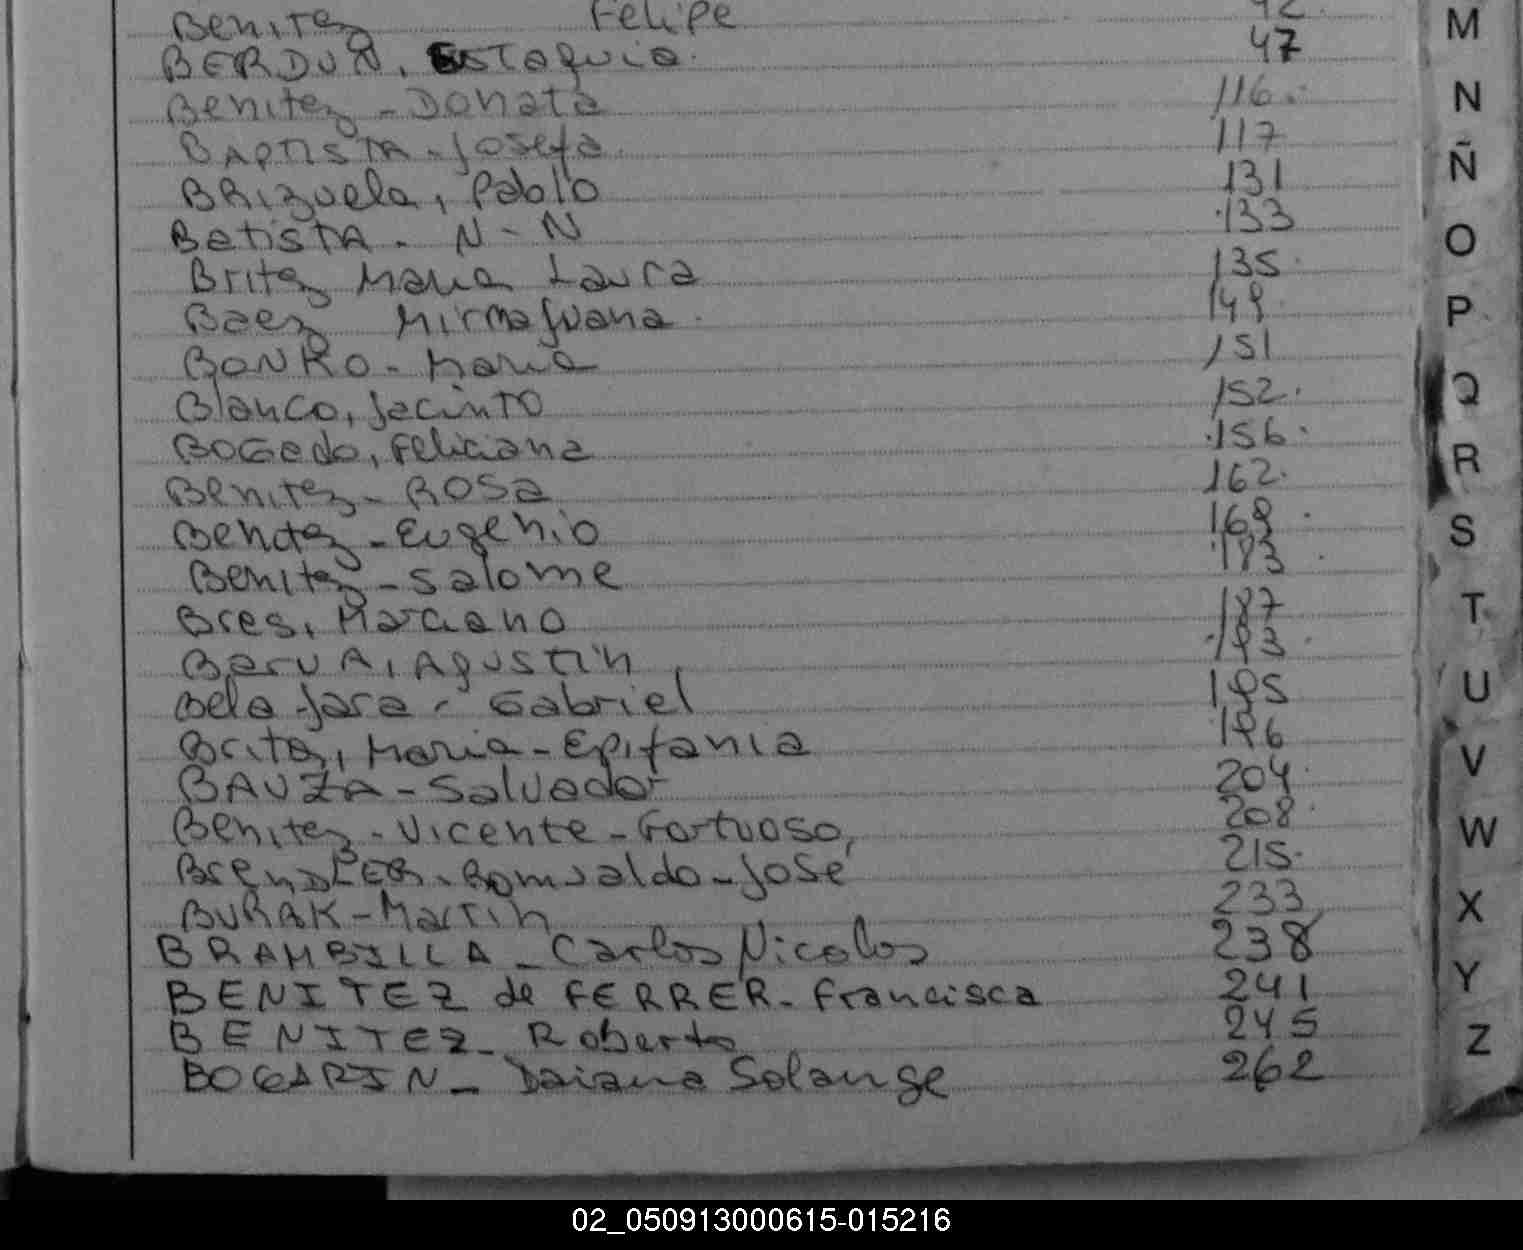 Benitez Felipe 42.
BERDUN, ESTaquia. 47
Benitez - Donata 116.
BAPTISTA - Josefa 117
BRizuela, Pablo 131
BatisTA - N - N 133
Britez Maria Laura 135
Baez Mirna Juana 149
BONKO - Maria 151
Blanco, Jacinto 152.
BOGedo, Feliciana 156.
Benitez - ROSa 162.
Benitez - Eugenio 169
Benitez - Salome 183
Bres, Marciano 187
BaruA, Agustin 193
Bela Jara - Gabriel 195
Britez, Maria - Epifania 196
BAUZA - Salvador 204
Benitez - Vicente - Fortuoso, 208
BrenDLER - Romualdo - José 215.
BURAK - Martin 233
BRAMBILLA - Carlos Nicolos 238
BENITEZ de FERRER - Francisca 241
BENITEZ - Roberto 245
BOGARIN - Daiana Solange 262
M
N
Ñ
O
P
Q
R
S
T
U
V
W
X
Y
Z
02_050913000615-015216